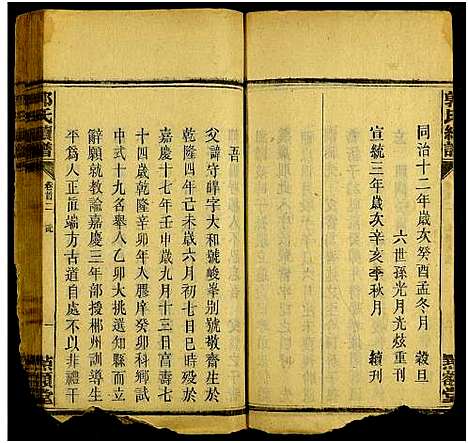 郭氏續譜
同治十二年歲次癸酉孟冬月 穀旦
六世孫光月光炫重刊
宣統三年歲次辛亥季秋月 續刊
吾
父諱守皥字大和號峻峯別號敬齋生於
乾隆四年己未歲六月初七日巳時歿於
嘉慶十七年壬申歲九月十三日高壽七
十四歲乾隆辛卯年入膠庠癸卯科鄉試
中式十九名舉人乙卯大挑選知縣而立
辭願就教諭嘉慶三年部授郴州訓導生
平為人正直端方古道自處不以非禮干
郭氏續譜
卷首二
一